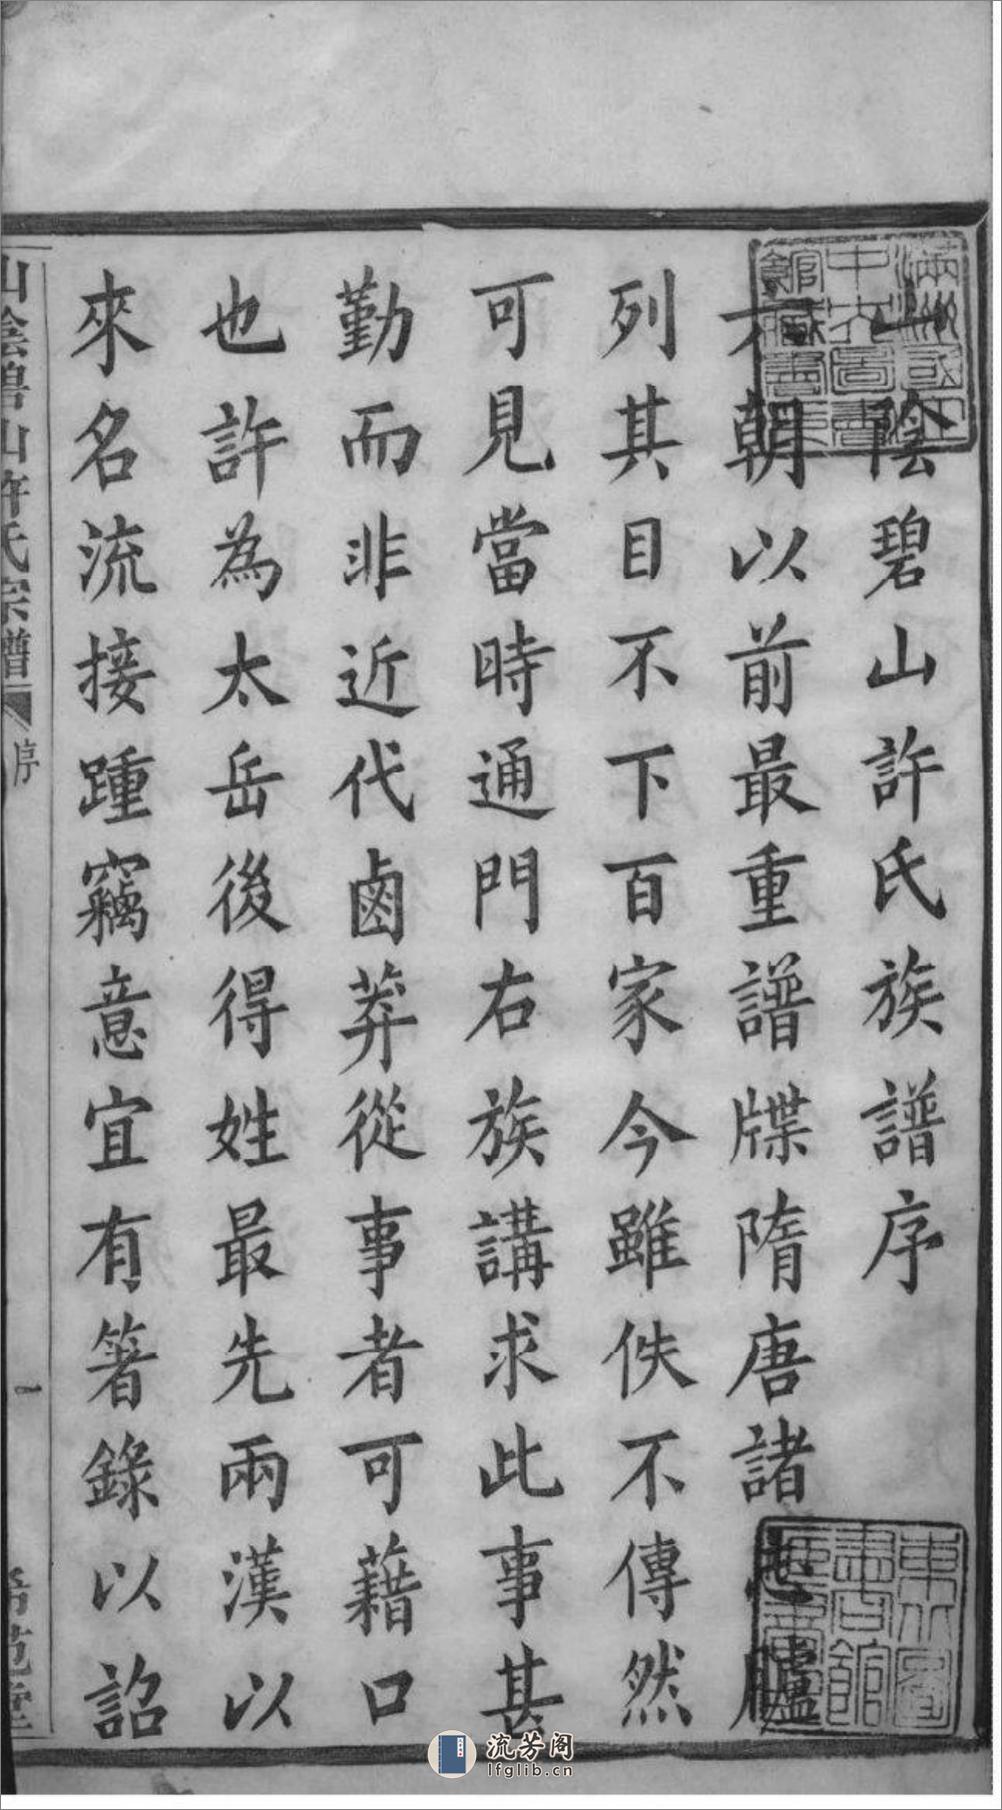 山陰碧山許氏族譜序
六朝以前最重譜牒隋唐諸志臚
列其目不下百家今雖佚不傳然
可見當時通門右族講求此事甚
勤而非近代鹵莽從事者可藉口
也許為太岳後得姓最先兩漢以
來名流接踵竊意宜有箸錄以詔
山陰碧山許氏宗譜
序
一
滿洲國立
中央圖書
館藏書
東北圖
書館
流芳阁
lfglib.cn